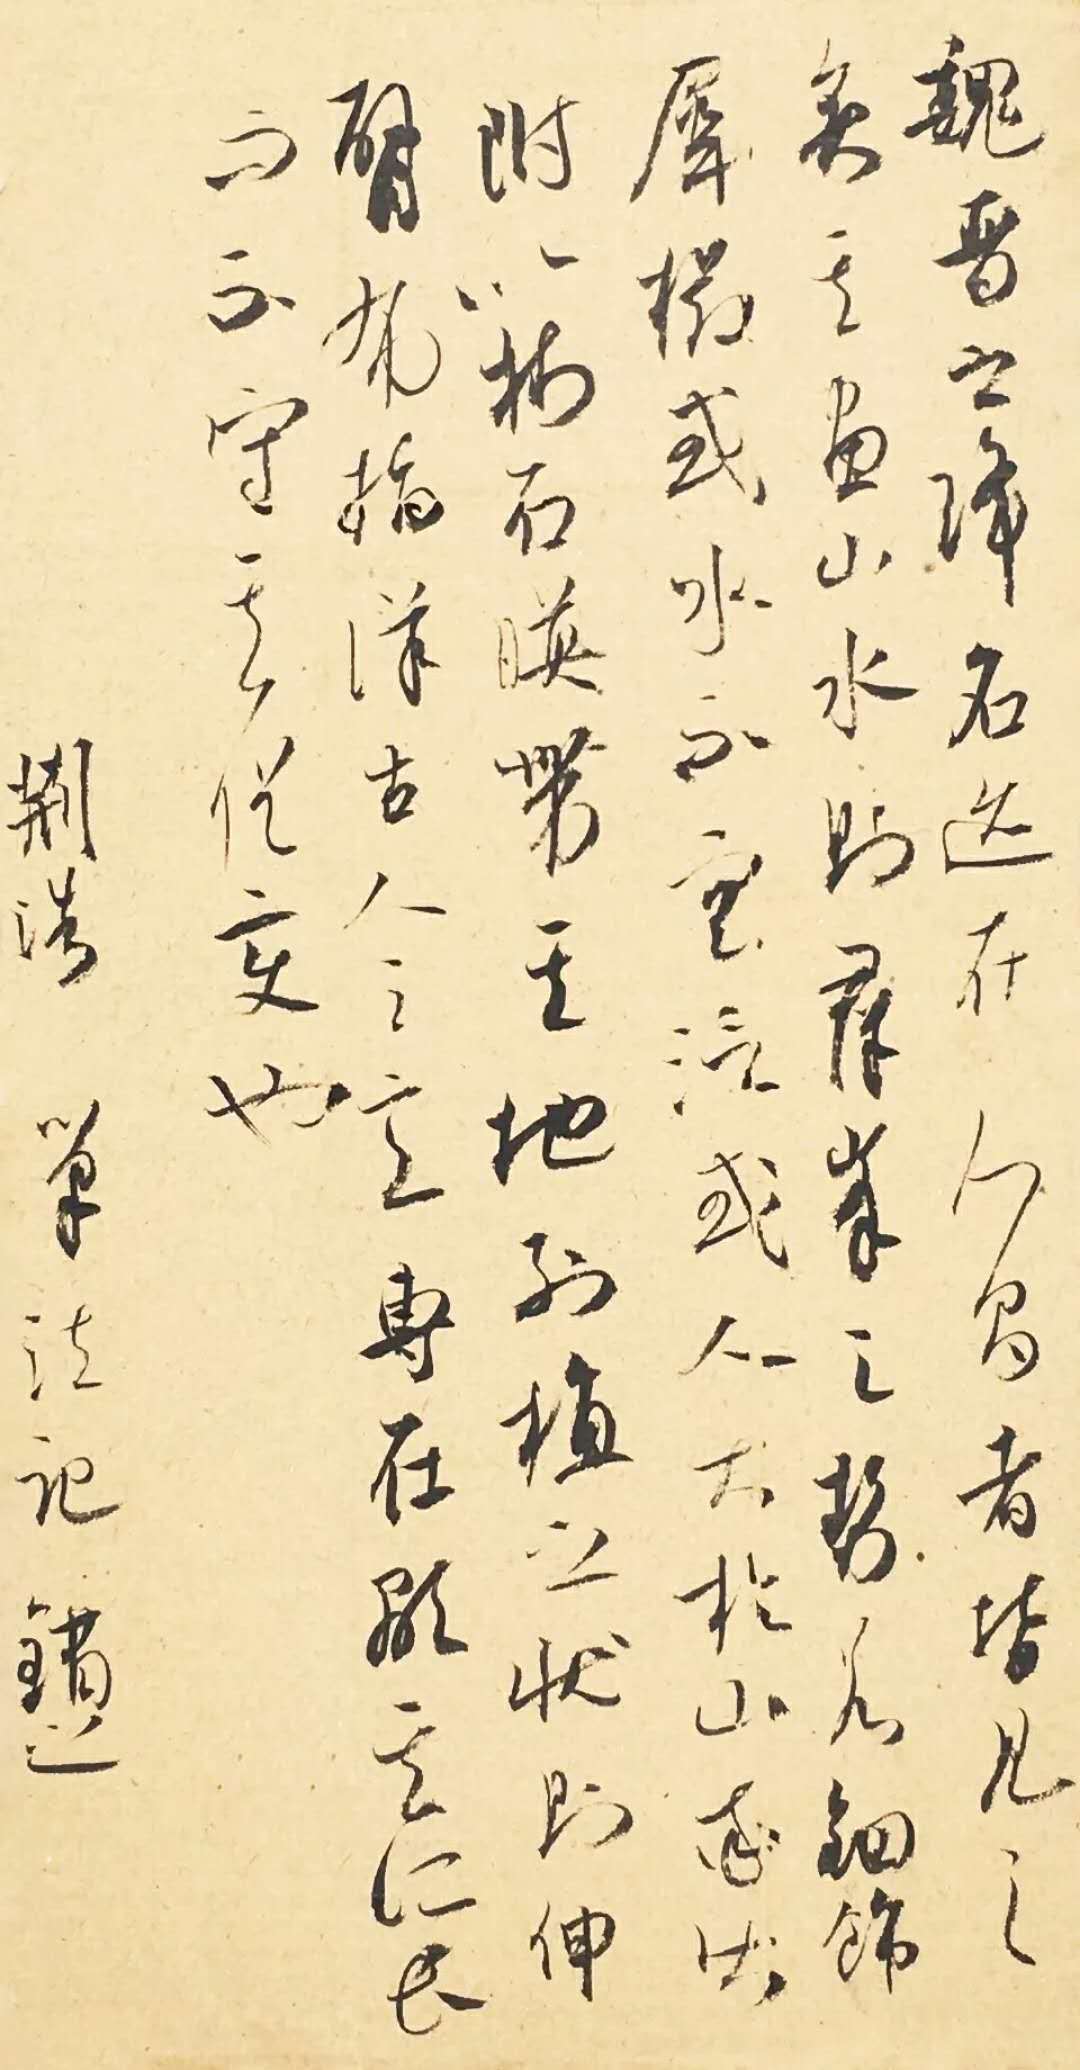 魏晉以降名迹在人間者皆見之
矣其畫山水則羣峯之勢若鈿飾
犀櫛或水不容泛或人大於山率皆
附以樹石暎帶其地列植之狀則伸
臂布指詳古人之意專在顯其所長
而不守其俗變也
荊浩 筆法記